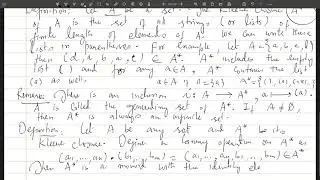 Definition: Let A be a set. The Kleene Chorone A*
of A is the set of all strings (or lists) of
finite length of elements of A. We can write these
lists in parentheses. For example let A = {a, b, c, d}
then (d, a, b, c) ∈ A*. A* includes the empty
list ( ) and for any a ∈ A, A* contains the list
(a) as well.
Remark: There is an inclusion A → A*, a → (a).
A is called the generating set of A*. If A ≠ ∅,
then A* is always an infinite set.
Definition: Let A be any set and A* be the
Kleene chorone. Define a binary operation on A* as
(a₁, ..., aₙ) · (b₁, ..., bₘ) = (a₁, ..., aₙ, b₁, ..., bₘ) ∈ A*
Then A* is a monoid with the identity ele